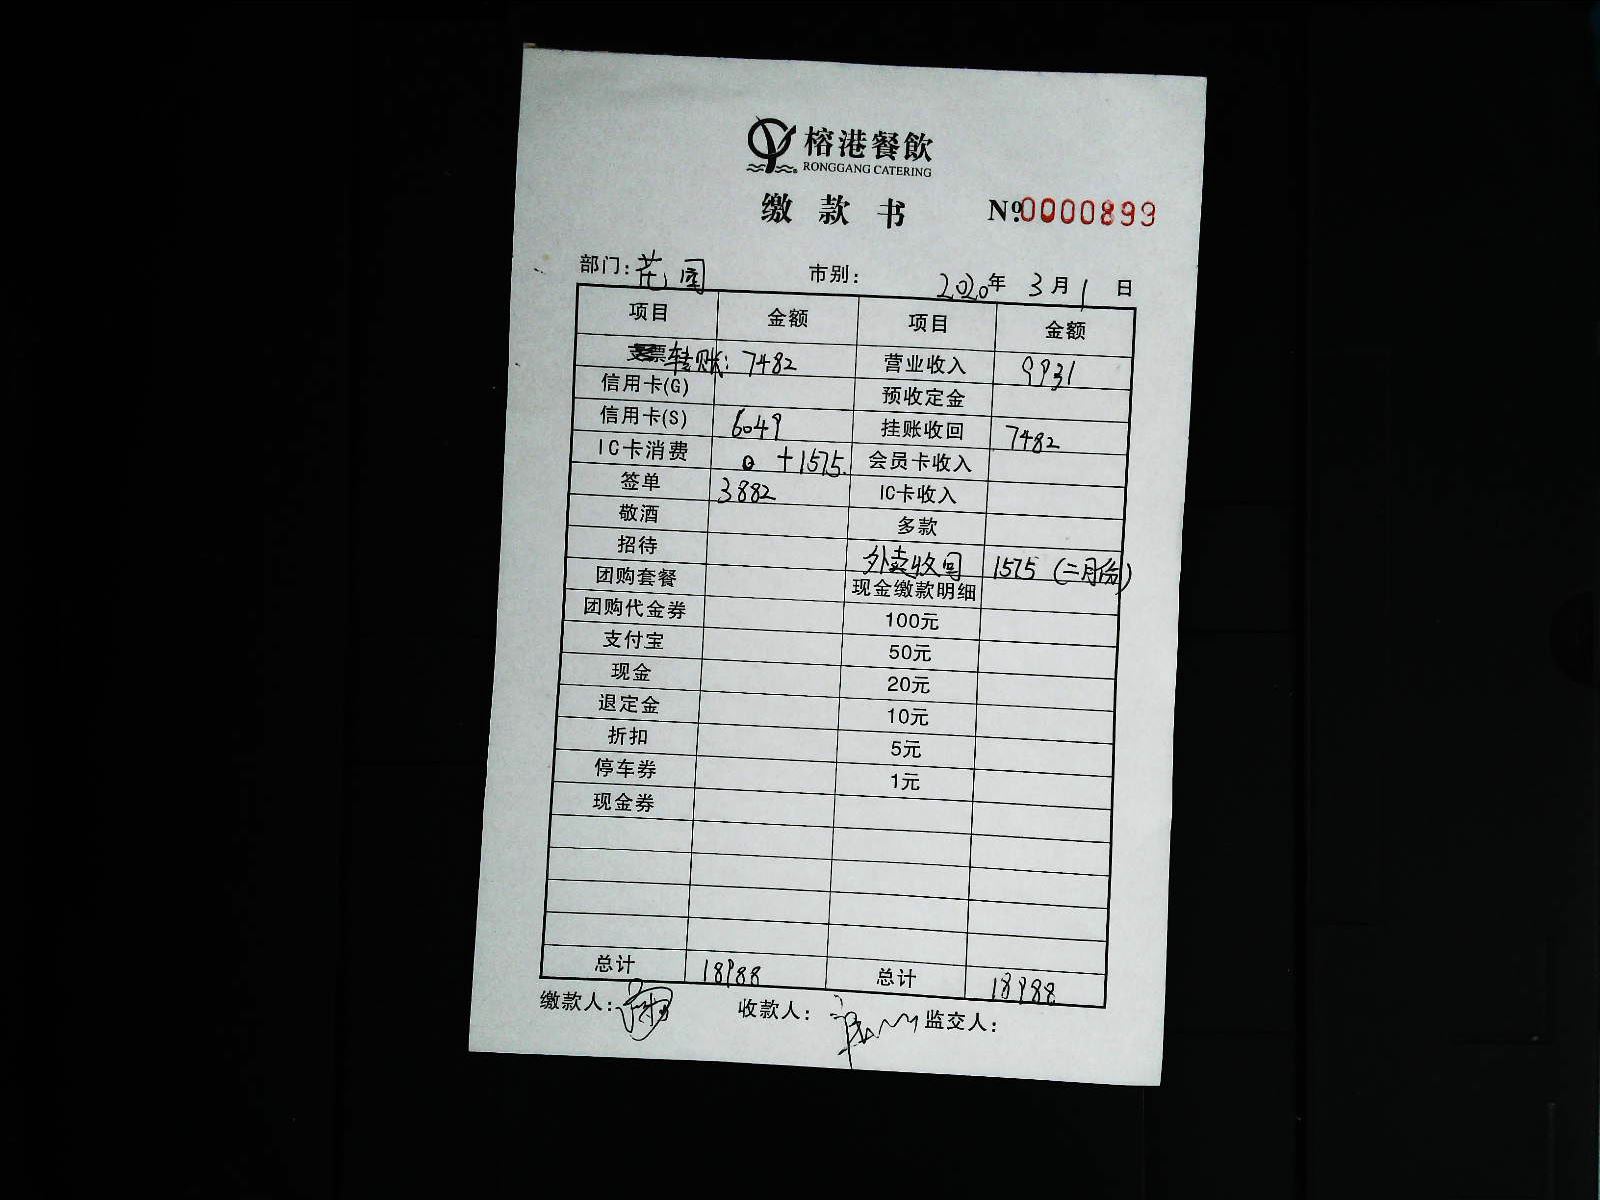 榕港餐飲
RONGGANG CATERING
缴款书 №0000899
部门: 花园 市别: 2020年3月1日
项目 金额 项目 金额
转账: 7482 营业收入 9931
信用卡(G) 预收定金
信用卡(S) 6049 挂账收回 7482
IC卡消费 0 +1575. 会员卡收入
签单 3882 IC卡收入
敬酒 多款
招待 外卖收回 1575 (二月份)
团购套餐 现金缴款明细
团购代金券 100元
支付宝 50元
现金 20元
退定金 10元
折扣 5元
停车券 1元
现金券
总计 18988 总计 18988
缴款人: 收款人: 监交人: